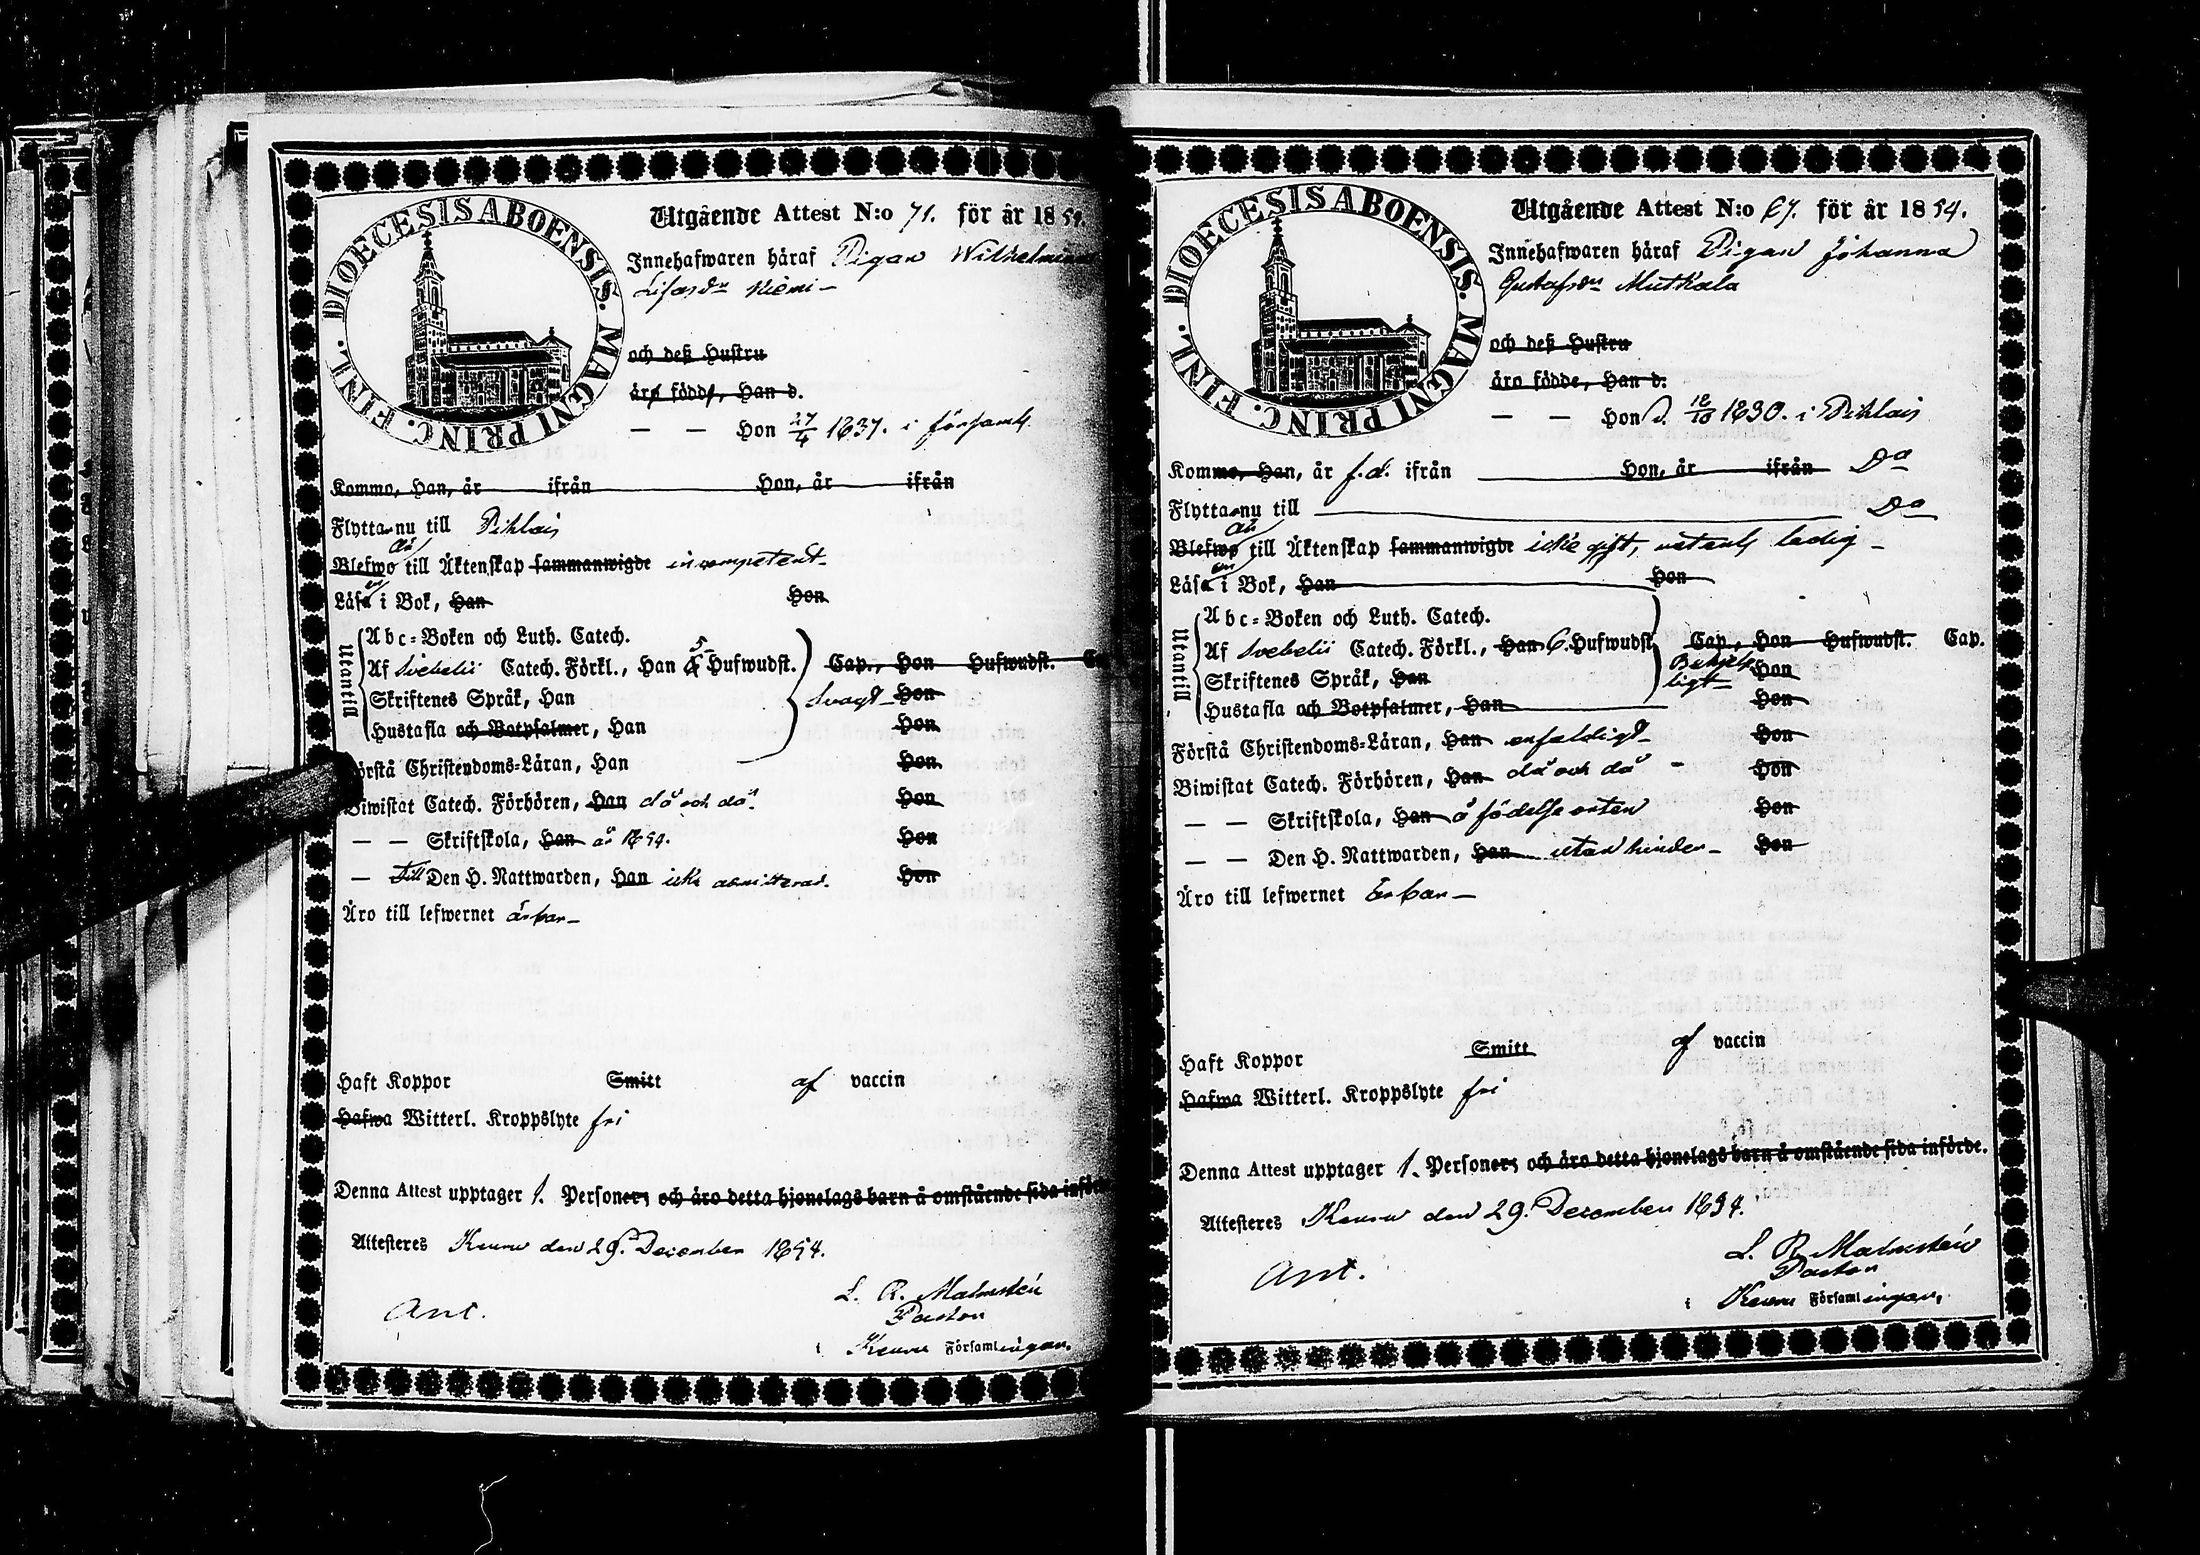 DIOECESIS ABOENSIS. MAGNI PRINC. FINL.
Utgående Attest N:o 71. för år 1854.
Innehafwaren häraf Pigan Wilhelmina
Niemi
och deß Hustru
äro födde, Han d.
— — Hon 27/4 1837. i församl.
Komma, Han, år ifrån Hon, år ifrån
Flytta nu till Pihlais
Blefwo är till Äktenskap sammanwigde incompetent
Läsa i Bok, Han Hon
Utantill
Abc-Boken och Luth. Catech.
Af Svebelii Catech. Förkl., Han 5 Hufwudst. Cap., Hon Hufwudst.
Skriftenes Språk, Han svagt Hon
Hustafla och Botpsalmer, Han Hon
Förstå Christendoms-Läran, Han Hon
Biwistat Catech. Förhören, Han då och då. Hon
— — Skriftskola, Han år 1854. Hon
— Till Den H. Nattwarden, Han icke admitterad. Hon
Äro till lefwernet ärbar
Haft Koppor Smitt af vaccin
Hafwa Witterl. Kroppslyte fri
Denna Attest upptager 1. Personer, och äro detta hjonelags barn å omstående sida införde.
Attesteres Keuru den 29. December 1854.
Ant. L. R. Malmstén
Pastor
i Keuru Församlingan.
DIOECESIS ABOENSIS. MAGNI PRINC. FINL.
Utgående Attest N:o för år 1854.
Innehafwaren häraf Pigan Johanna
Gustafsdr Mutkala
och deß Hustru
äro födde, Han d.
— — Hon d. 18/10 1830. i Pihlais
Komma, Han, år f.d. ifrån Hon, år ifrån Do
Flytta nu till Do
Blefwo är till Äktenskap sammanwigde icke gift, utan ledig
Läsa i Bok, Han Hon
Utantill
Abc-Boken och Luth. Catech.
Af Svebelii Catech. Förkl., Han 6. Hufwudst. Cap., Hon Hufwudst. Cap.
Skriftenes Språk, Han Behjelpligt Hon
Hustafla och Botpsalmer, Han Hon
Förstå Christendoms-Läran, Han enfaldigt Hon
Biwistat Catech. Förhören, Han då och då Hon
— — Skriftskola, Han å födelse orten Hon
— — Den H. Nattwarden, Han utan hinder Hon
Äro till lefwernet ärbar
Haft Koppor Smitt af vaccin
Hafwa Witterl. Kroppslyte fri
Denna Attest upptager 1. Personer, och äro detta hjonelags barn å omstående sida införde.
Attesteres Keuru den 29. December 1854.
Ant. L. R. Malmstén
Pastor
i Keuru Församlingan.